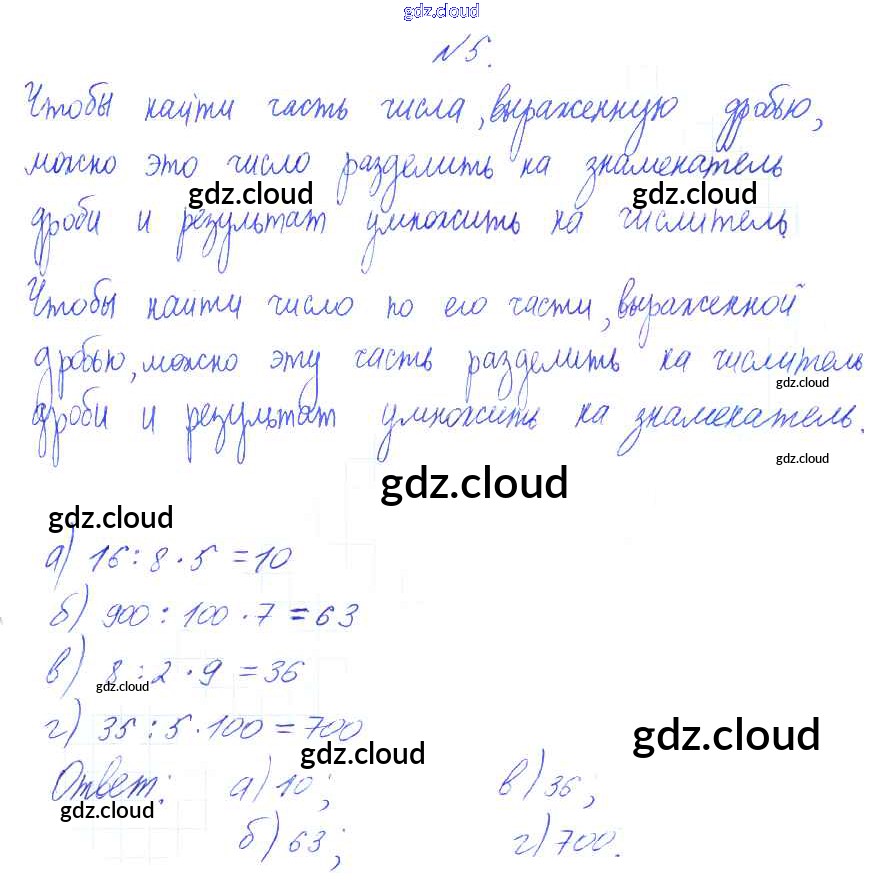 gdz.cloud
№5.
Чтобы найти часть числа, выраженную дробью,
можно это число разделить на знаменатель
gdz.cloud gdz.cloud
дроби и результат умножить на числитель.
Чтобы найти число по его части, выраженной
дробью, можно эту часть разделить на числитель
gdz.cloud
дроби и результат умножить на знаменатель.
gdz.cloud
gdz.cloud
gdz.cloud
а) 16 : 8 · 5 = 10
б) 900 : 100 · 7 = 63
в) 8 : 2 · 9 = 36
gdz.cloud
г) 35 : 5 · 100 = 700
gdz.cloud
gdz.cloud
Ответ: а) 10; в) 36;
gdz.cloud
б) 63; г) 700.